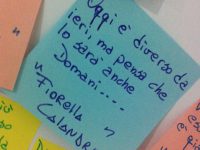 Oggi è diverso da
ieri, ma pensa che
lo sarà anche
Domani....
"Fiorella
Calandra"